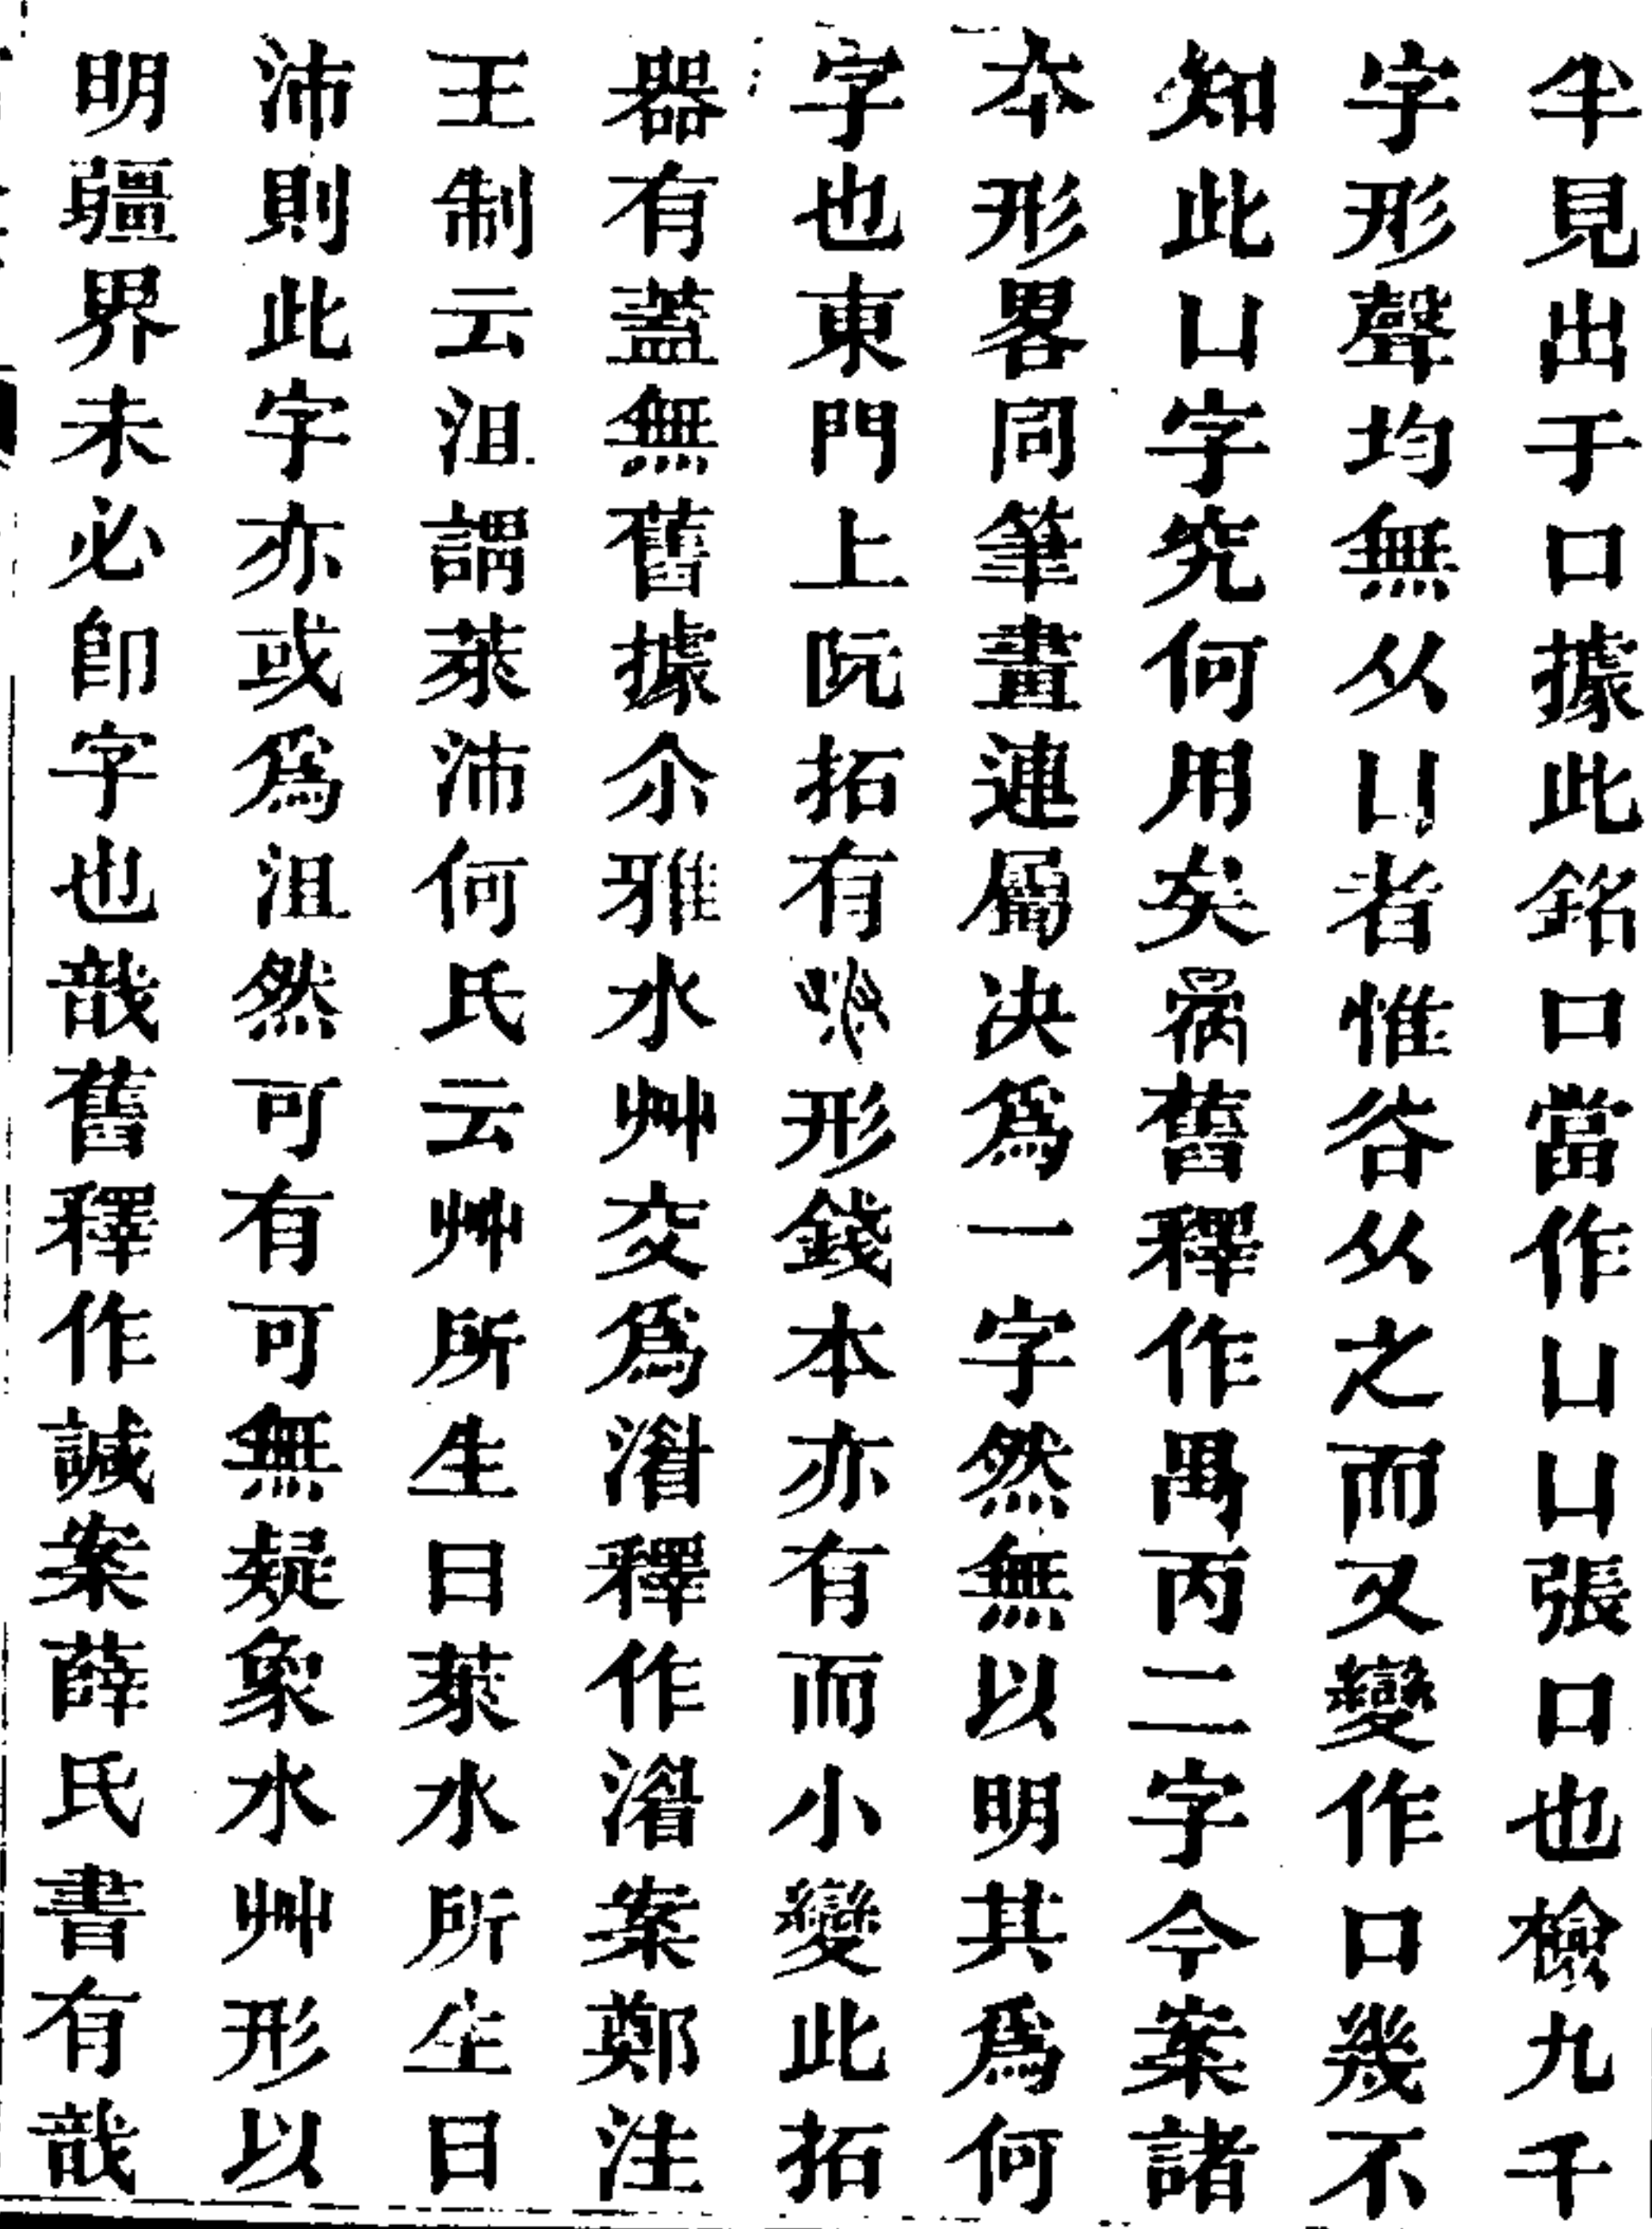 半見出于口據此銘口當作凵凵張口也檢九千
字形聲均無从凵者惟谷从之而又變作口幾不
知此凵字究何用矣舊釋作禺丙二字今案諸
本形畧同筆畫連屬决爲一字然無以明其爲何
字也東門上阮拓有形錢本亦有而小變此拓
器有蓋無舊據尒雅水艸交爲湄釋作湄案鄭注
王制云沮謂萊沛何氏云艸所生曰萊水所生曰
沛則此字亦或爲沮然可有可無疑象水艸形以
明疆界未必卽字也哉舊釋作諴案薛氏書有哉